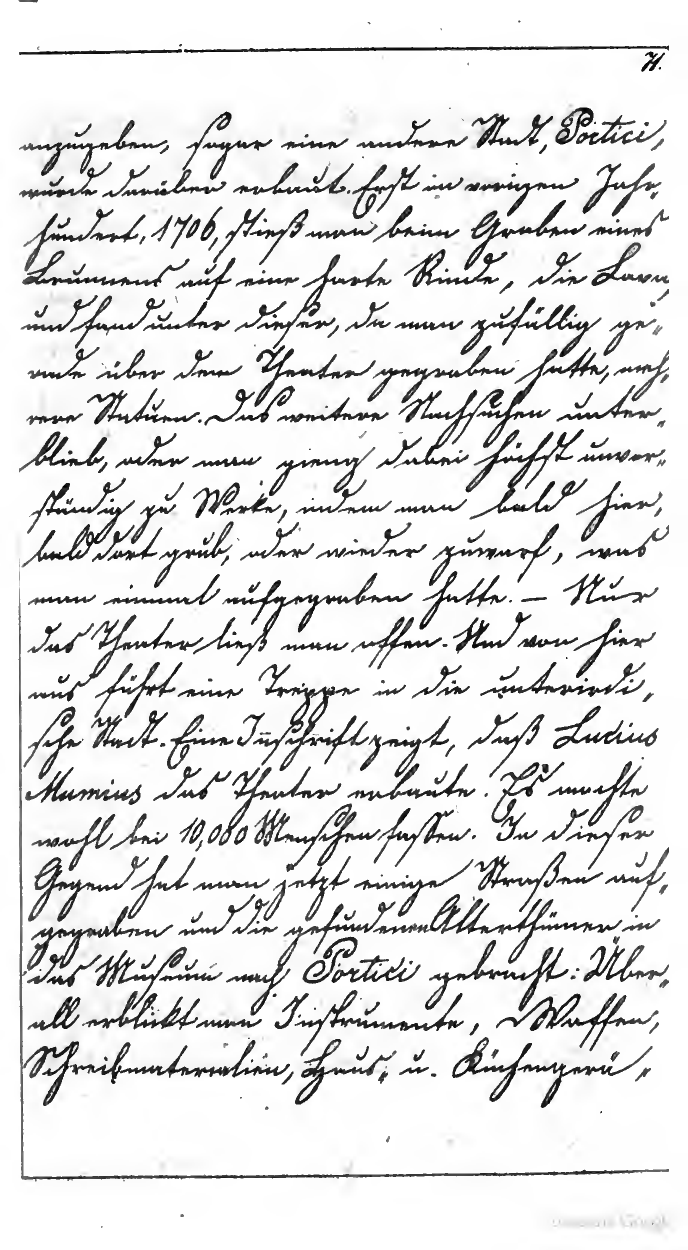 71.
anzugeben, sogar eine andere Stadt, Portici,
wurde darüber erbaut. Erst im vorigen Jahr„
hundert, 1706, stieß man beim Graben eines
Brunnens auf eine harte Rinde, die Lava,
und fand unter dieser, da man zufällig ge„
rade über dem Theater gegraben hatte, meh„
rere Statuen. Das weitere Nachsuchen unter„
blieb, oder man gieng dabei höchst unver„
ständig zu Werke, indem man bald hier,
bald dort grub, oder wieder zuwarf, was
man einmal aufgegraben hatte. — Nur
das Theater ließ man offen. Und von hier
aus führt eine Treppe in die unterirdi„
sche Stadt. Eine Inschrift zeigt, daß Lucius
Mumius das Theater erbaute. Es mochte
wohl bei 10,000 Menschen fassen. In dieser
Gegend hat man jetzt einige Straßen auf„
gegraben und die gefundenen Alterthümer in
das Museum nach Portici gebracht: Über„
all erblickt man Instrumente, Waffen,
Schreibmaterialien, Haus„ u. Küchengerä„